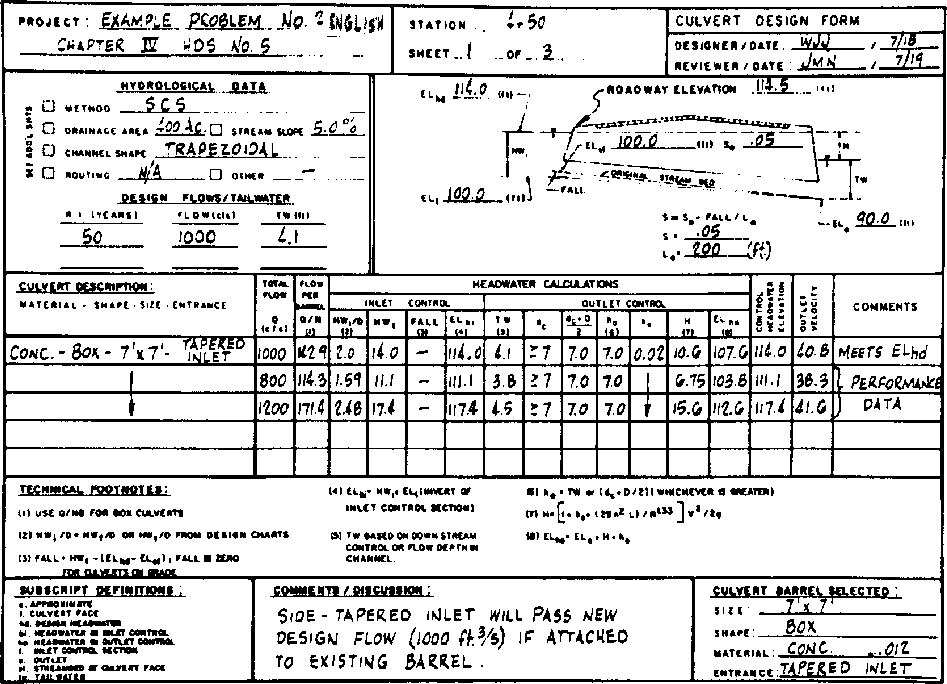 PROJECT: EXAMPLE PROBLEM No. 3 ENGLISH
CHAPTER IV HDS No. 5
STATION 1+50
SHEET 1 OF 3
CULVERT DESIGN FORM
DESIGNER/DATE: WJJ / 7/18
REVIEWER/DATE: JMN / 7/19
HYDROLOGICAL DATA
SEE ADD'L SHTS
METHOD SCS
DRAINAGE AREA 200 AC. STREAM SLOPE 5.0%
CHANNEL SHAPE TRAPEZOIDAL
ROUTING N/A OTHER —
DESIGN FLOWS/TAILWATER
R I (YEARS) FLOW(cfs) TW (ft)
50 1000 4.1
ELhd 114.0 (ft)
ROADWAY ELEVATION 114.5 (ft)
ELsf 100.0 (ft) So .05
HWi
TH
TW
ORIGINAL STREAM BED
FALL
ELi 100.0 (ft)
ELo 90.0 (ft)
S = So - FALL / La
S = .05
La = 200 (ft)
CULVERT DESCRIPTION:
MATERIAL - SHAPE - SIZE - ENTRANCE
TOTAL FLOW Q (cfs)
FLOW PER BARREL Q/N (1)
HEADWATER CALCULATIONS
INLET CONTROL OUTLET CONTROL
HWi/D (2) HWi FALL (3) ELhi (4) TW (5) dc dc+D/2 ho (6) ke H (7) ELho (8)
CONTROL HEADWATER ELEVATION
OUTLET VELOCITY
COMMENTS
CONC. - BOX - 7' x 7' - TAPERED INLET 1000 142.9 2.0 14.0 — 114.0 4.1 ≥7 7.0 7.0 0.02 10.6 107.6 114.0 40.8 MEETS ELhd
800 114.3 1.59 11.1 — 111.1 3.8 ≥7 7.0 7.0 6.75 103.8 111.1 38.3 PERFORMANCE
1200 171.4 2.48 17.4 — 117.4 4.5 ≥7 7.0 7.0 15.6 112.6 117.4 41.6 DATA
TECHNICAL FOOTNOTES:
(1) USE Q/NB FOR BOX CULVERTS
(2) HWi/D = HW/D OR HWi/D FROM DESIGN CHARTS
(3) FALL = HWi - (ELhd - ELsf); FALL IS ZERO
FOR CULVERTS ON GRADE
(4) ELhi = HWi + ELi (INVERT OF
INLET CONTROL SECTION)
(5) TW BASED ON DOWN STREAM
CONTROL OR FLOW DEPTH IN
CHANNEL.
(6) ho = TW or (dc + D/2) (WHICHEVER IS GREATER)
(7) H = [1 + ke + (29 n² L) / R^1.33] V²/2g
(8) ELho = ELo + H + ho
SUBSCRIPT DEFINITIONS:
a. APPROXIMATE
f. CULVERT FACE
hd. DESIGN HEADWATER
hi. HEADWATER IN INLET CONTROL
ho. HEADWATER IN OUTLET CONTROL
i. INLET CONTROL SECTION
o. OUTLET
sf. STREAMBED AT CULVERT FACE
tw. TAILWATER
COMMENTS / DISCUSSION:
SIDE-TAPERED INLET WILL PASS NEW
DESIGN FLOW (1000 ft³/s) IF ATTACHED
TO EXISTING BARREL.
CULVERT BARREL SELECTED:
SIZE: 7' x 7'
SHAPE: BOX
MATERIAL: CONC. .012
ENTRANCE: TAPERED INLET